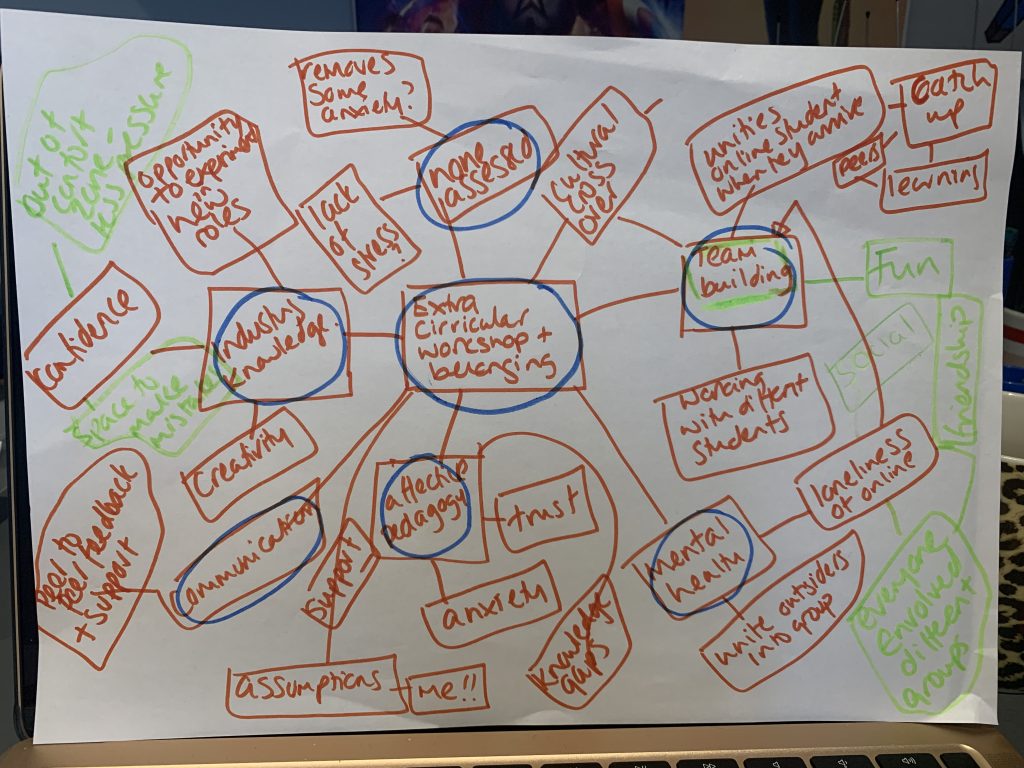 out of
comfort
zone -
less pressure
opportunity
to experiment
in
new
roles
removes
some
anxiety?
lack
of
stress?
none
assessed
cultural
cross
over
unities
online student
when they arrive
peers
catch
up
learning
Team
building
Fun
social
friendship
confidence
industry
knowledge.
Extra
cirricular
workshop +
belonging
space to
make
mistakes
creativity
working
with different
students
loneliness
of online
peer to
peer feedback
+ support
communication
support
affective
pedagogy
trust
anxiety
knowledge
gaps
mental
health
unite outsiders
into group
everyone
envolved
different
groups
assumptions
me!!